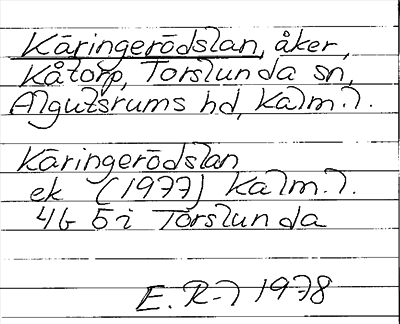 Käringerödslan, åker,
Kåtorp, Torslunda sn,
Algutsrums hd, Kalm. l.
Käringerödslan
ek (1977) Kalm. l.
4G 5i Torslunda
E. R-l 1978